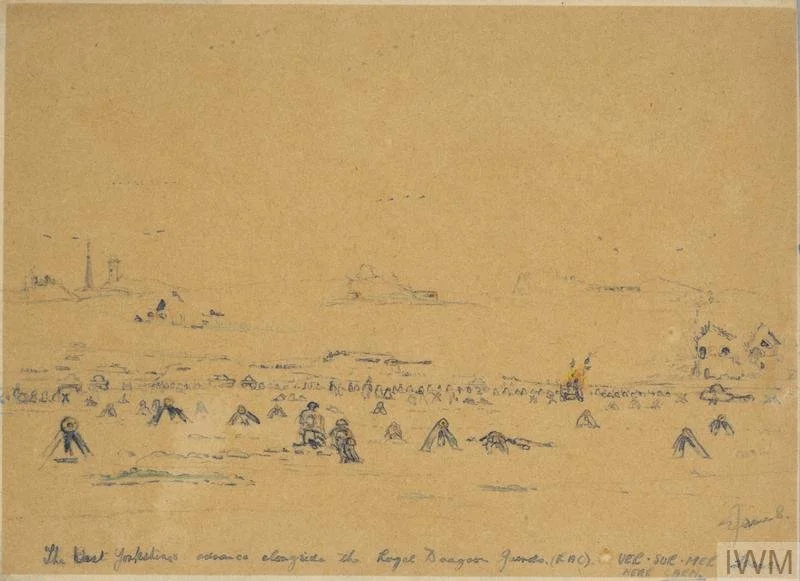 The East Yorkshires advance alongside the Royal Dragoon Guards. (RAC). VER-SUR-MER
NEAR CAEN
IWM